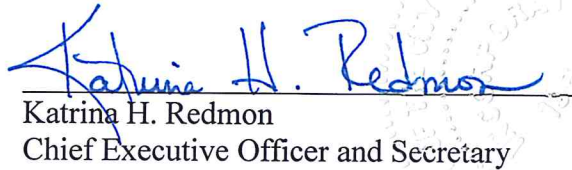 Katrina H. Redmon
Katrina H. Redmon
Chief Executive Officer and Secretary